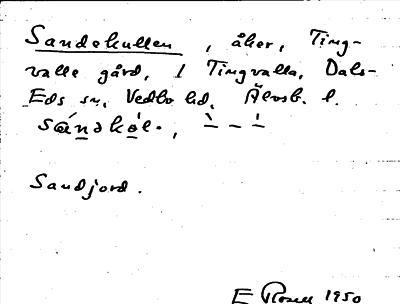 Sandekullen, åker, Ting-
valla gård, 1 Tingvalla, Dals-
Eds sn, Vedbo hd, Älvsb. l.
Sandjord.
E Rosell 1950